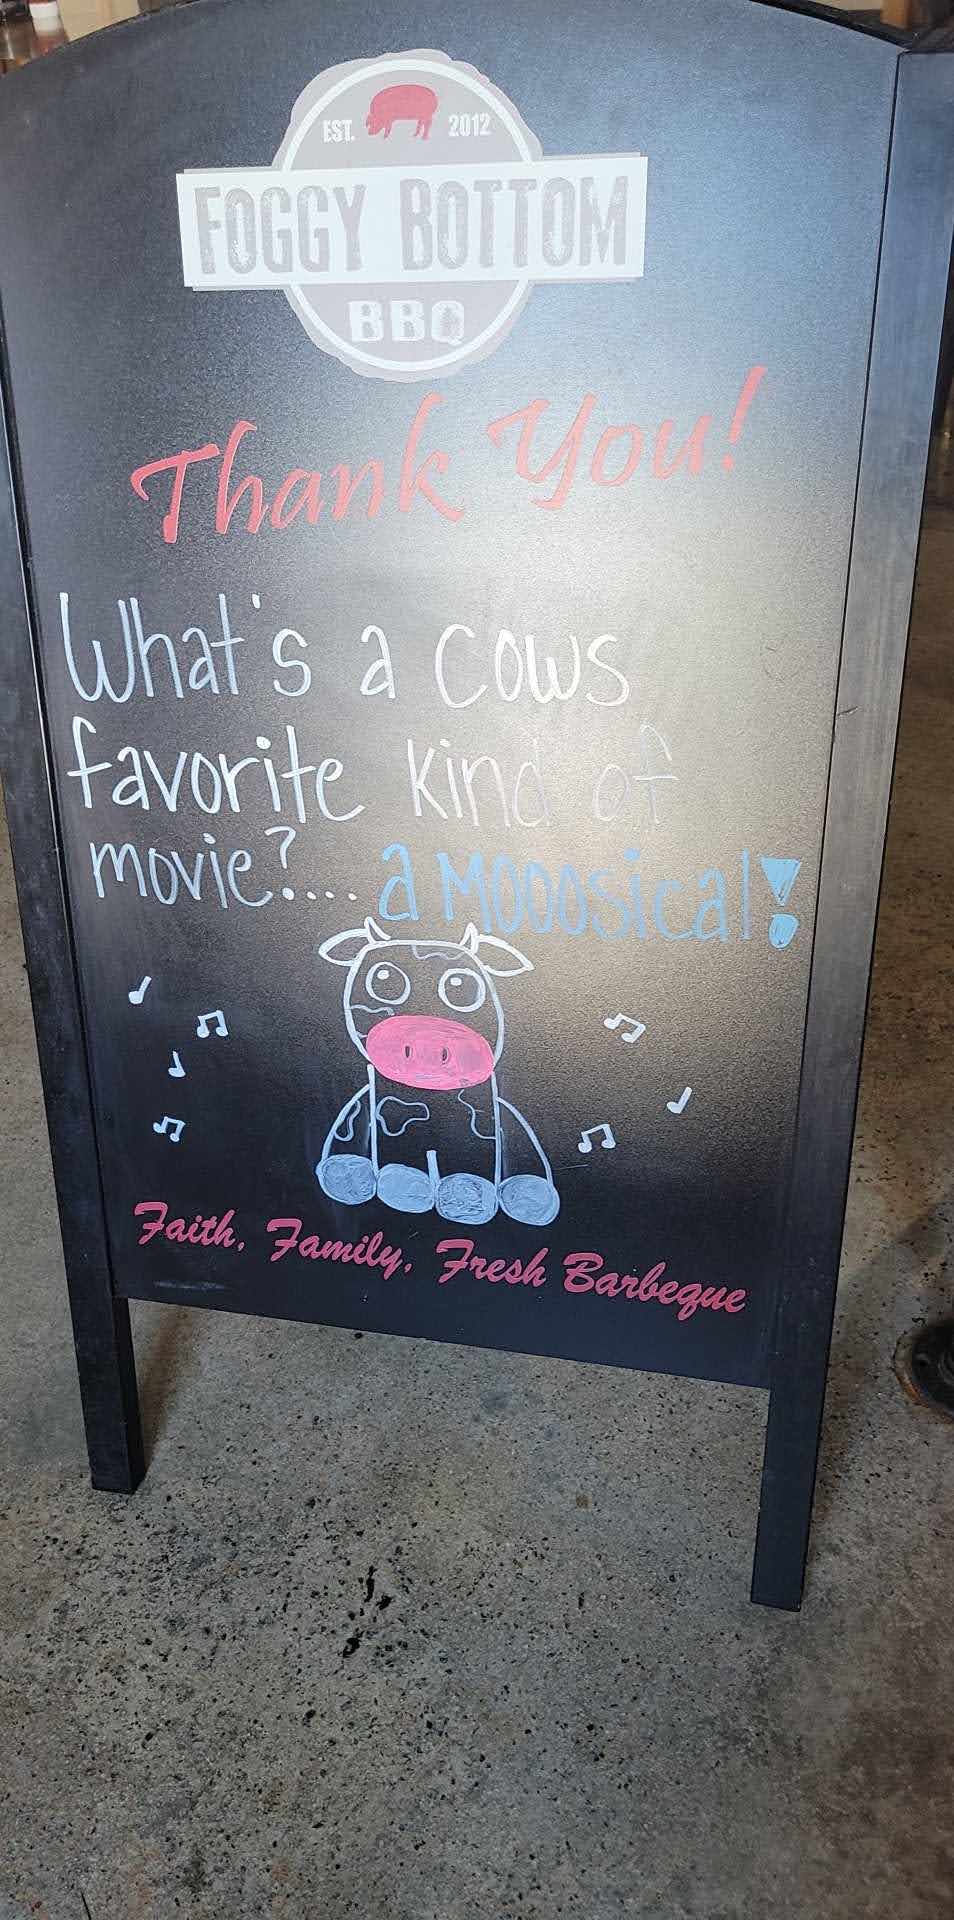 EST. 2012
FOGGY BOTTOM
BBQ
Thank You!
What's a cows
favorite kind of
movie?.... a MOOOsical!
Faith, Family, Fresh Barbeque